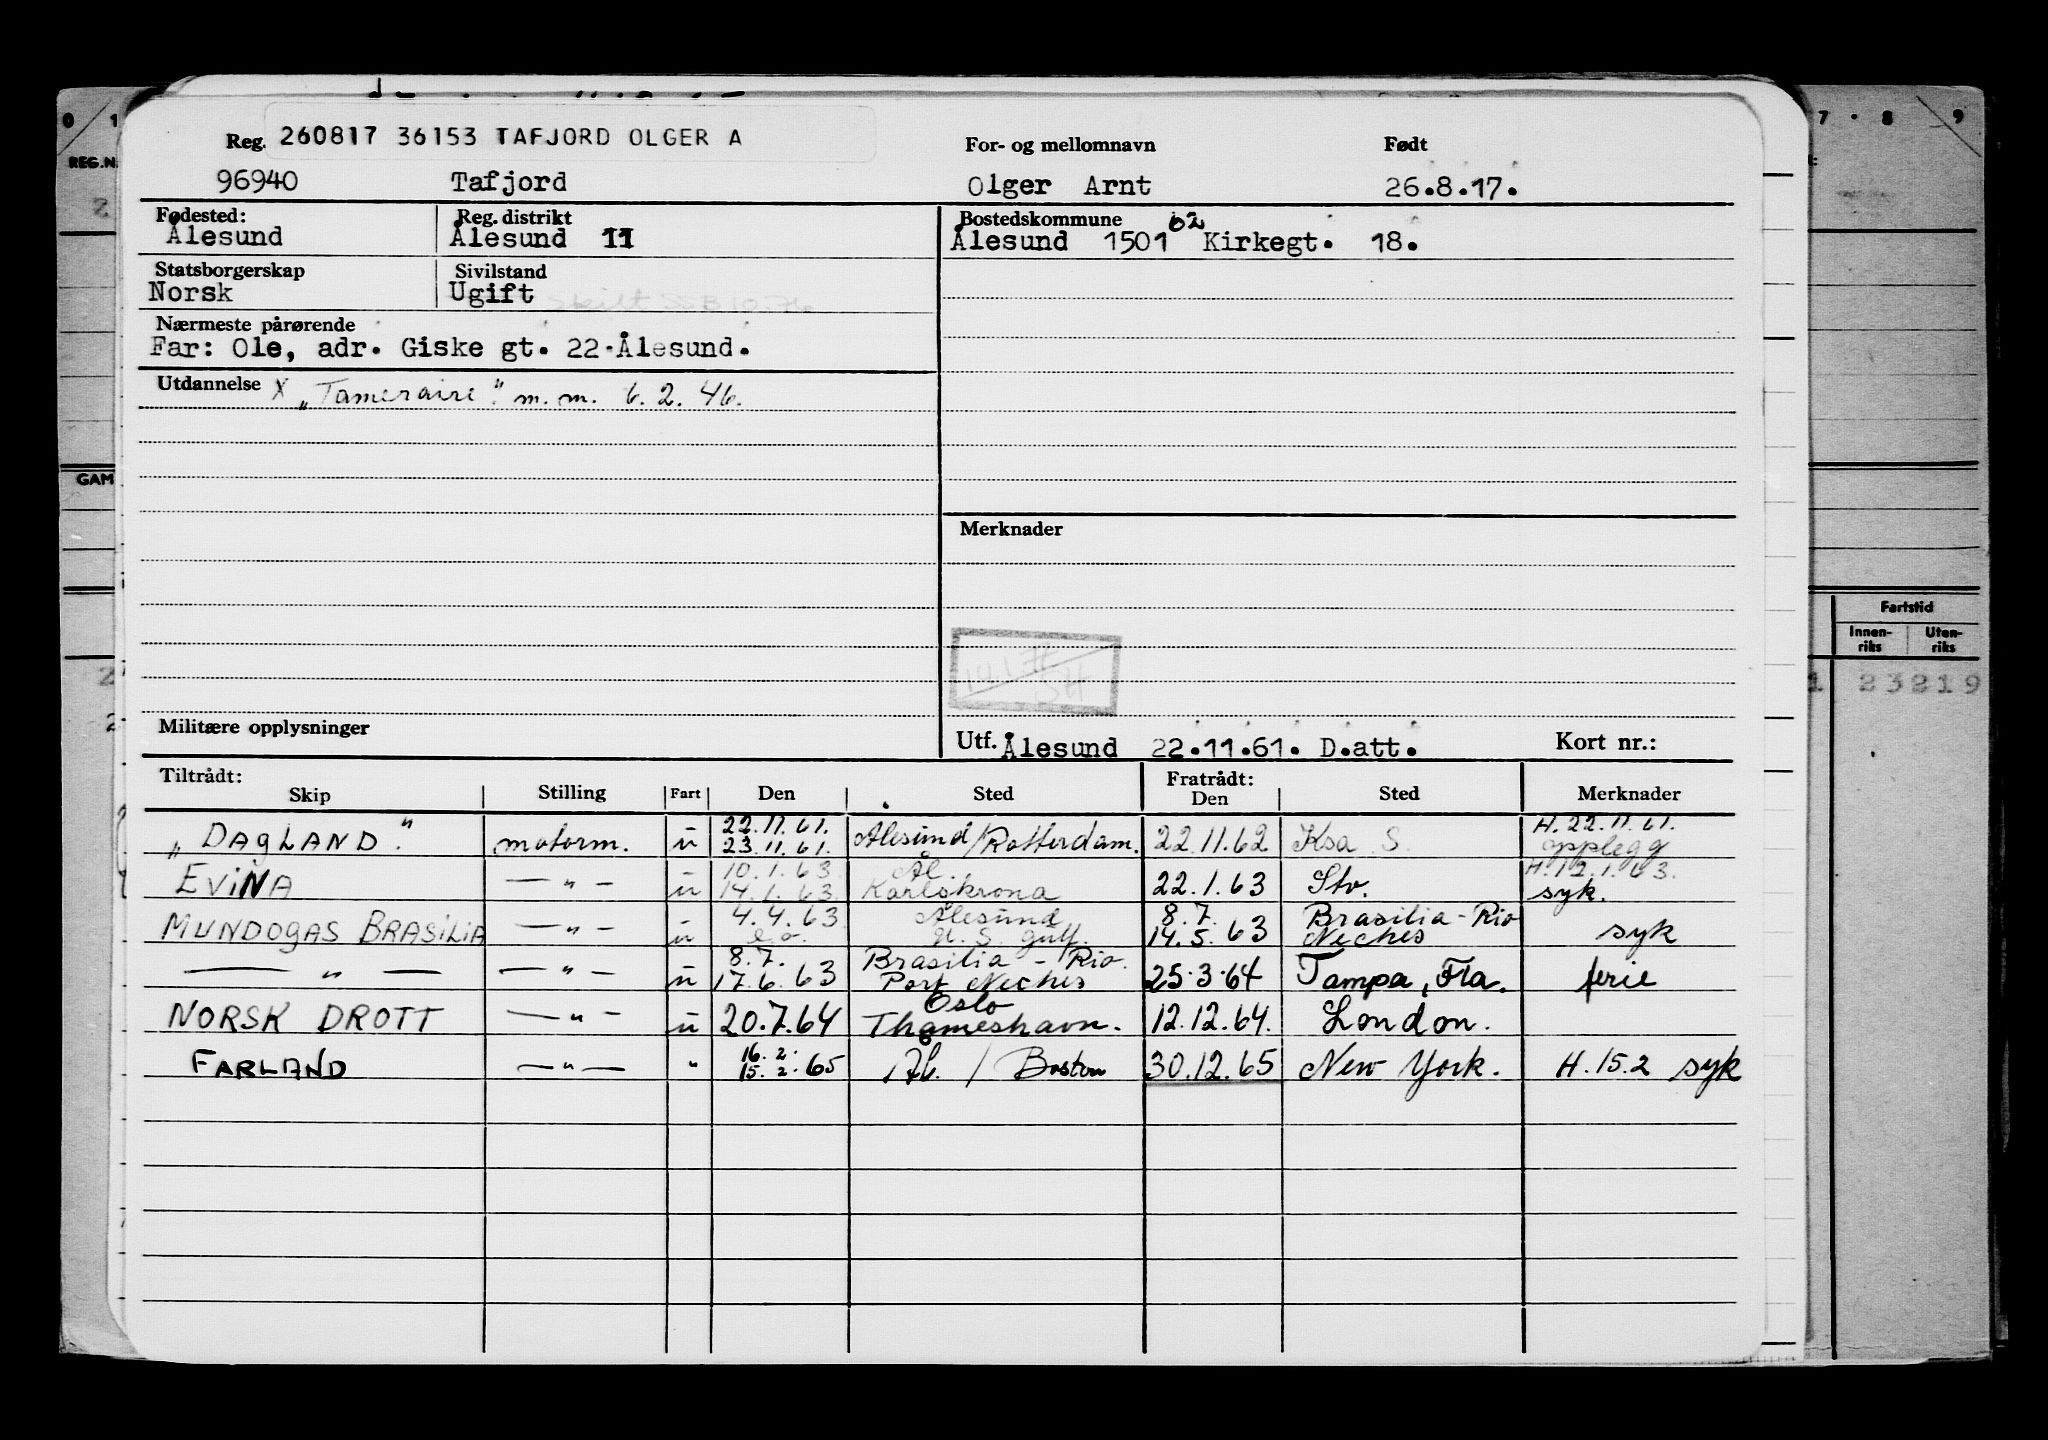 Reg. 260817 36153 TAFJORD OLGER A
For- og mellomnavn Født
96940 Tafjord Olger Arnt 26.8.17.
Fødested: Reg. distrikt Bostedskommune 62
Ålesund Ålesund 11 Ålesund 1501 Kirkegt. 18.
Statsborgerskap Sivilstand
Norsk Ugift
Nærmeste pårørende
Far: Ole, adr. Giske gt. 22 Ålesund.
Utdannelse X „Tameraire". m.m. 6.2.46.
Merknader
Militære opplysninger
Utf. Ålesund 22.11.61. D.att. Kort nr.:
Tiltrådt: Fratrådt:
Skip Stilling Fart Den Sted Den Sted Merknader
22.11.61. H. 22.11.61.
„DAGLAND." motorm. u 23.11.61. Ålesund/Rotterdam. 22.11.62 Ksa S. opplegg
10.1.63. Ål. H.12.1.63.
EVINA — " — u 14.1.63. Karlskrona 22.1.63 Stv. syk.
4.4.63 Ålesund 8.7. Brasilia - Rio
MUNDOGAS BRASILIA — " — u U.S. gulf. 14.5.63 Neches syk
8.7. Brasilia - Rio.
— " — — " — u 17.6.63 Port Neches 25.3.64 Tampa, Fla. ferie
Oslo
NORSK DROTT — " — u 20.7.64 Thameshavn. 12.12.64. London.
16.2.
FARLAND — " — " 15.2.65 Ål. / Boston 30.12.65 New York. H.15.2 syk
REG.N
GAM
7 · 8 9
Fartstid
Innen-riks Uten-riks
1 23219